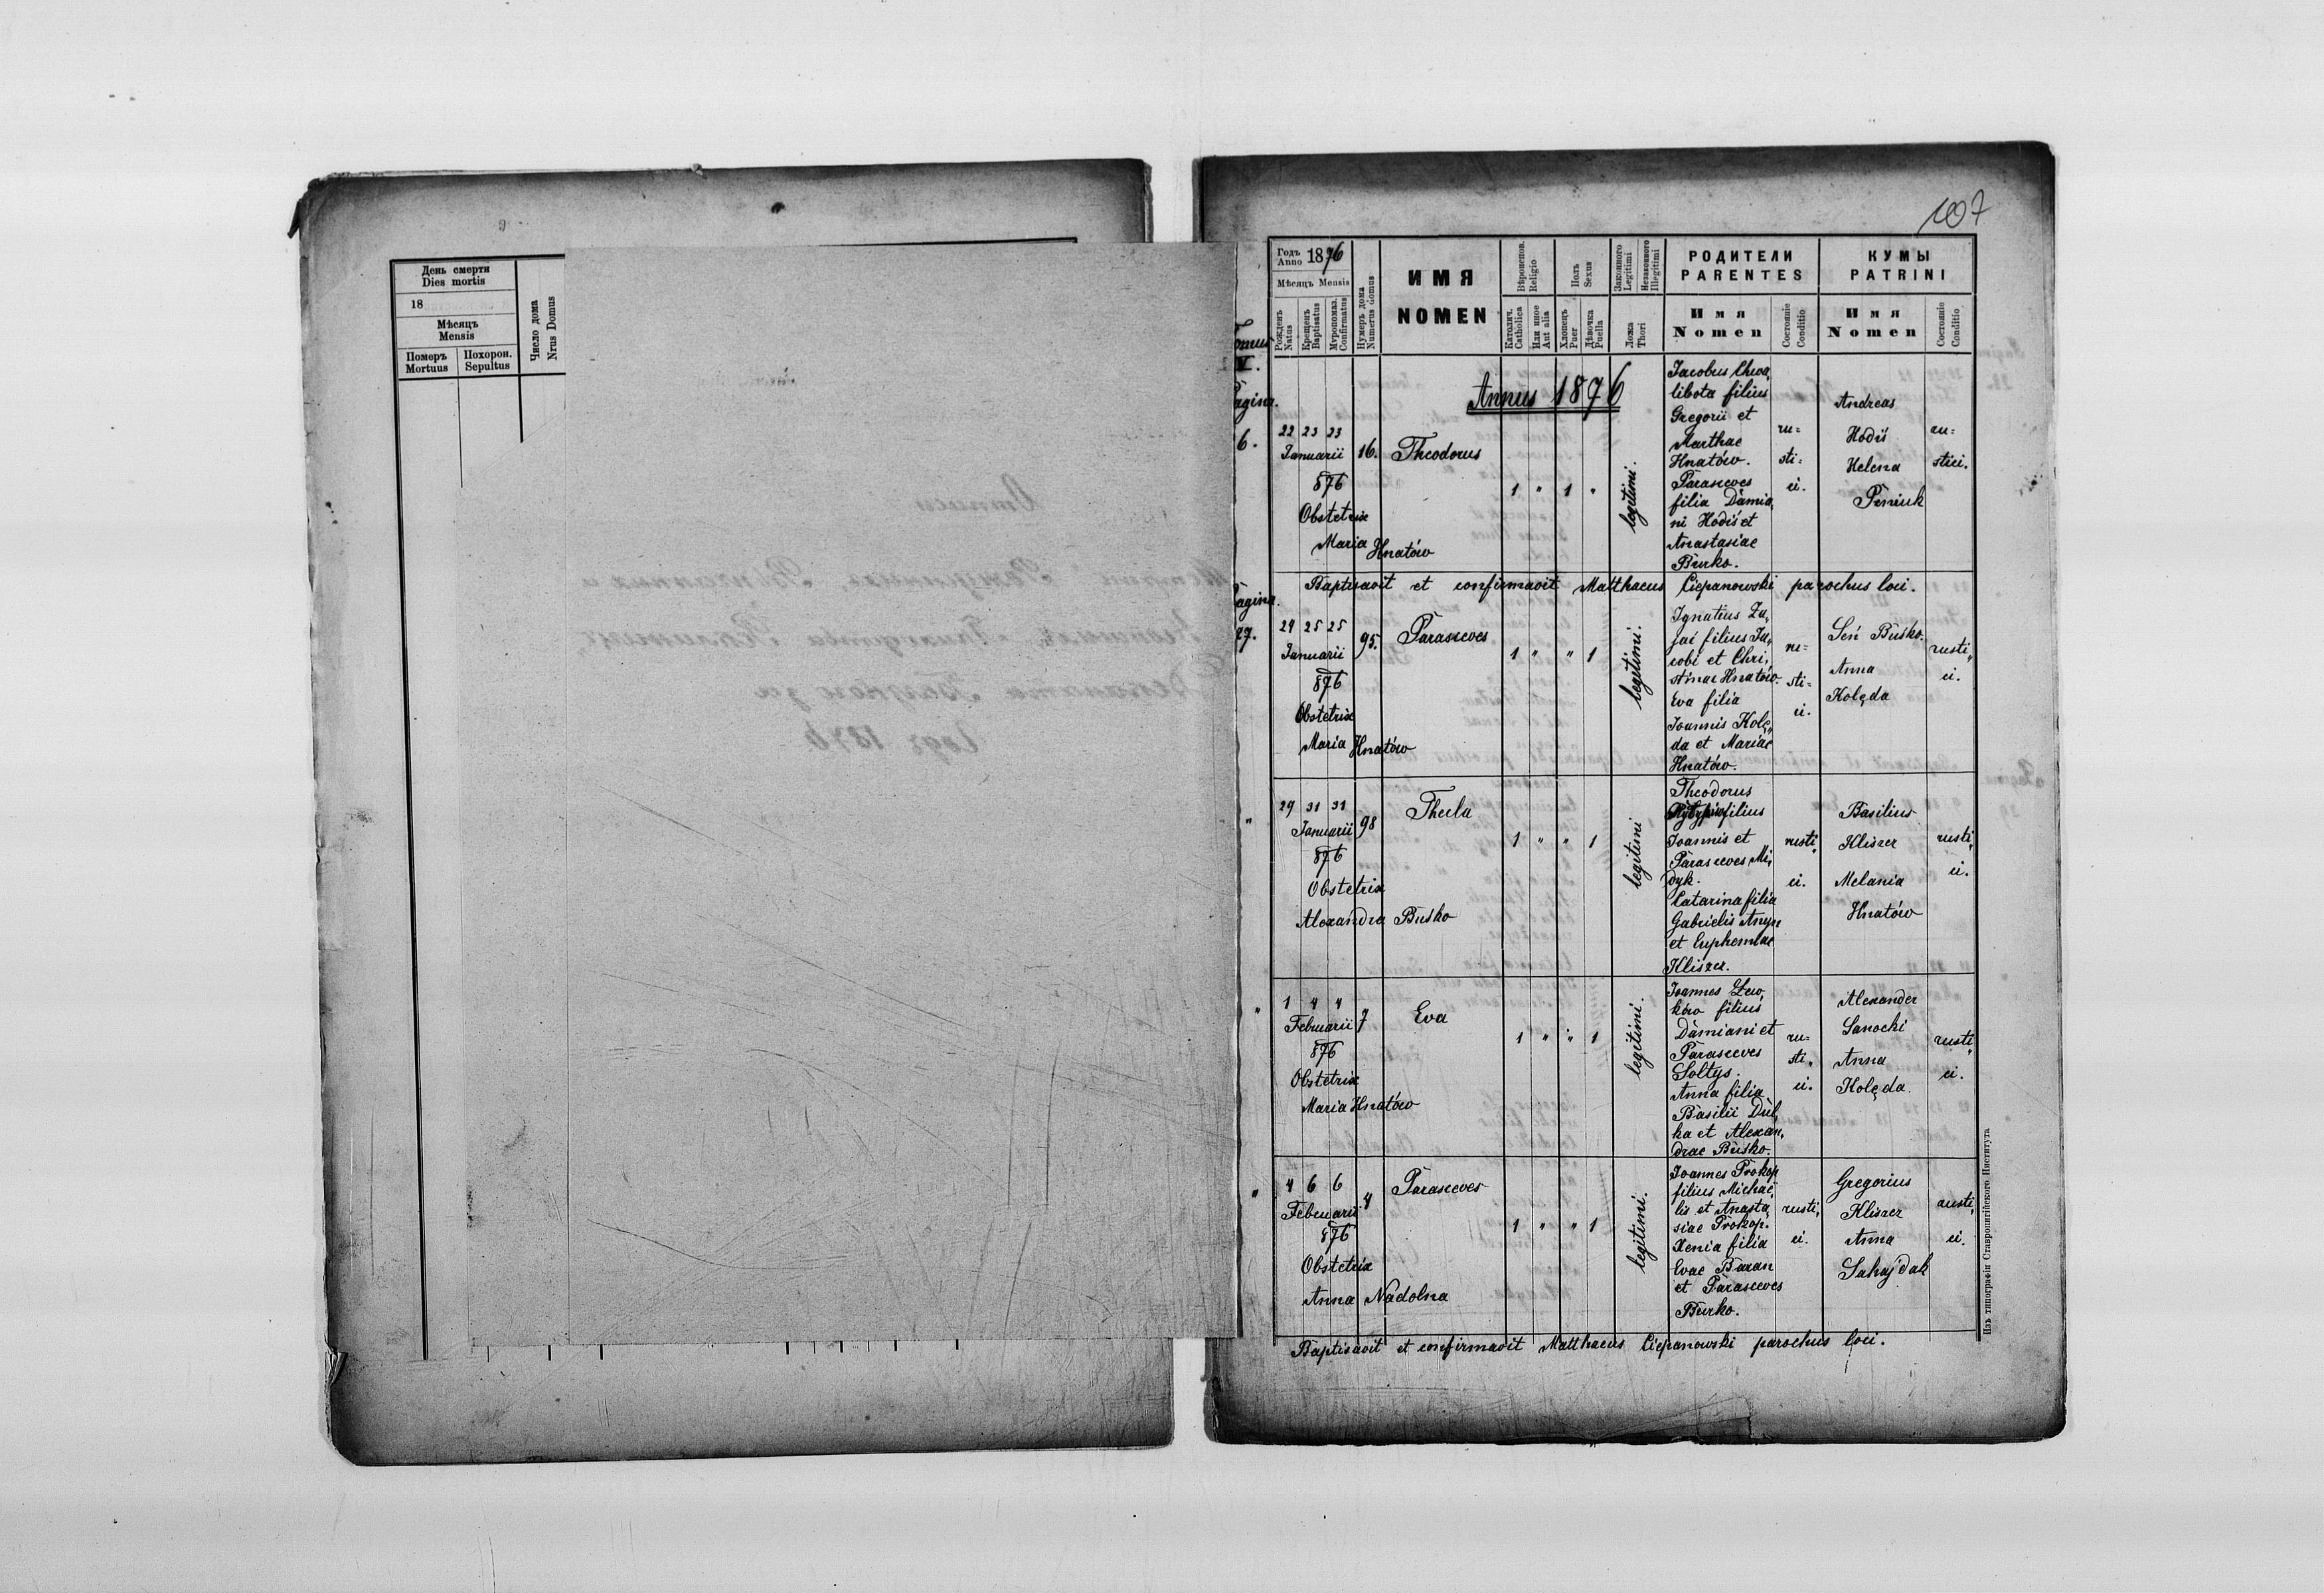 107
День смерти
Dies mortis
18
Мѣсяцъ
Mensis
Померъ
Mortuus
Похорон.
Sepultus
Число дома
Nrus Domus
Годъ
Anno 1876
Мѣсяцъ Mensis
Рожденъ
Natus
Крещенъ
Baptisatus
Мѵропомаз.
Confirmatus
Нумеръ дома
Numerus domus
ИМЯ
NOMEN
Вѣроисповѣд.
Religio
Католич.
Catholica
Или иное
Aut alia
Полъ
Sexus
Хлопець
Puer
Дѣвочка
Puella
Законного
Legitimi
Незаконного
Illegitimi
Ложа
Thori
РОДИТЕЛИ
PARENTES
Имя
Nomen
Состояніе
Conditio
КУМЫ
PATRINI
Имя
Nomen
Состояніе
Conditio
Annus 1876
6.
22 23 23
Januarii
876
Obstetrix
Maria Hnatów
16.
Theodorus
1 " 1 "
legitimi.
Jacobus Chwa,
libota filius
Gregorii et
Marthae
Hnatów.
Parasceves
filia Damia,
ni Hodiś et
Anastasiae
Burko.
ru=
sti=
ci.
Andreas
Hodiś
Helena
Peniuk
ru=
stici.
Baptisavit et confirmavit Matthaeus Ciepanowski parochus loci.
27.
24 25 25
Januarii
876
Obstetrix
Maria Hnatów
95.
Parasceves
1 " " 1
legitimi.
Ignatius Za,
jać filius Ja,
cobi et Chri,
stinae Hnatów.
Eva filia
Joannis Kolę,
da et Mariae
Hnatów.
ru=
sti=
ci.
Seń Buśko.
Anna
Kolęda
rusti,
ci.
"
29 31 31
Januarii
876
Obstetrix
Alexandra Buśko
98
Thecla
1 " " 1
legitimi
Theodorus
filius
Joannis et
Parasceves Mi,
dyk.
Catarina filia
Gabrielis
et Euphemiae
Kliszcz.
rusti,
ci.
Basilius
Kliszcz
Melania
Hnatów
rusti,
ci.
"
1 4 4
Februarii
876
Obstetrix
Maria Hnatów
7
Eva
1 " " 1
legitimi.
Joannes Lew,
ków filius
Damiani et
Parasceves
Soltys.
Anna filia
Basilii Dul,
ka et Alexan,
drae Buśko.
ru=
sti,
ci.
Alexander
Sanocki
Anna
Kolęda.
rusti,
ci.
"
4 6 6
Februarii
876
Obstetrix
Anna Nadolna
4
Parasceves
1 " " 1
legitimi.
Joannes Prokop
filius Michaë,
lis et Anasta,
siae Prokop.
Xenia filia
Evae Baran
et Parasceves
Burko.
rusti,
ci.
Gregorius
Kliszcz
Anna
Sahajdak
rusti,
ci.
Baptisavit et confirmavit Matthaeus Ciepanowski parochus loci.
Изъ типографіи Ставропигійского Института